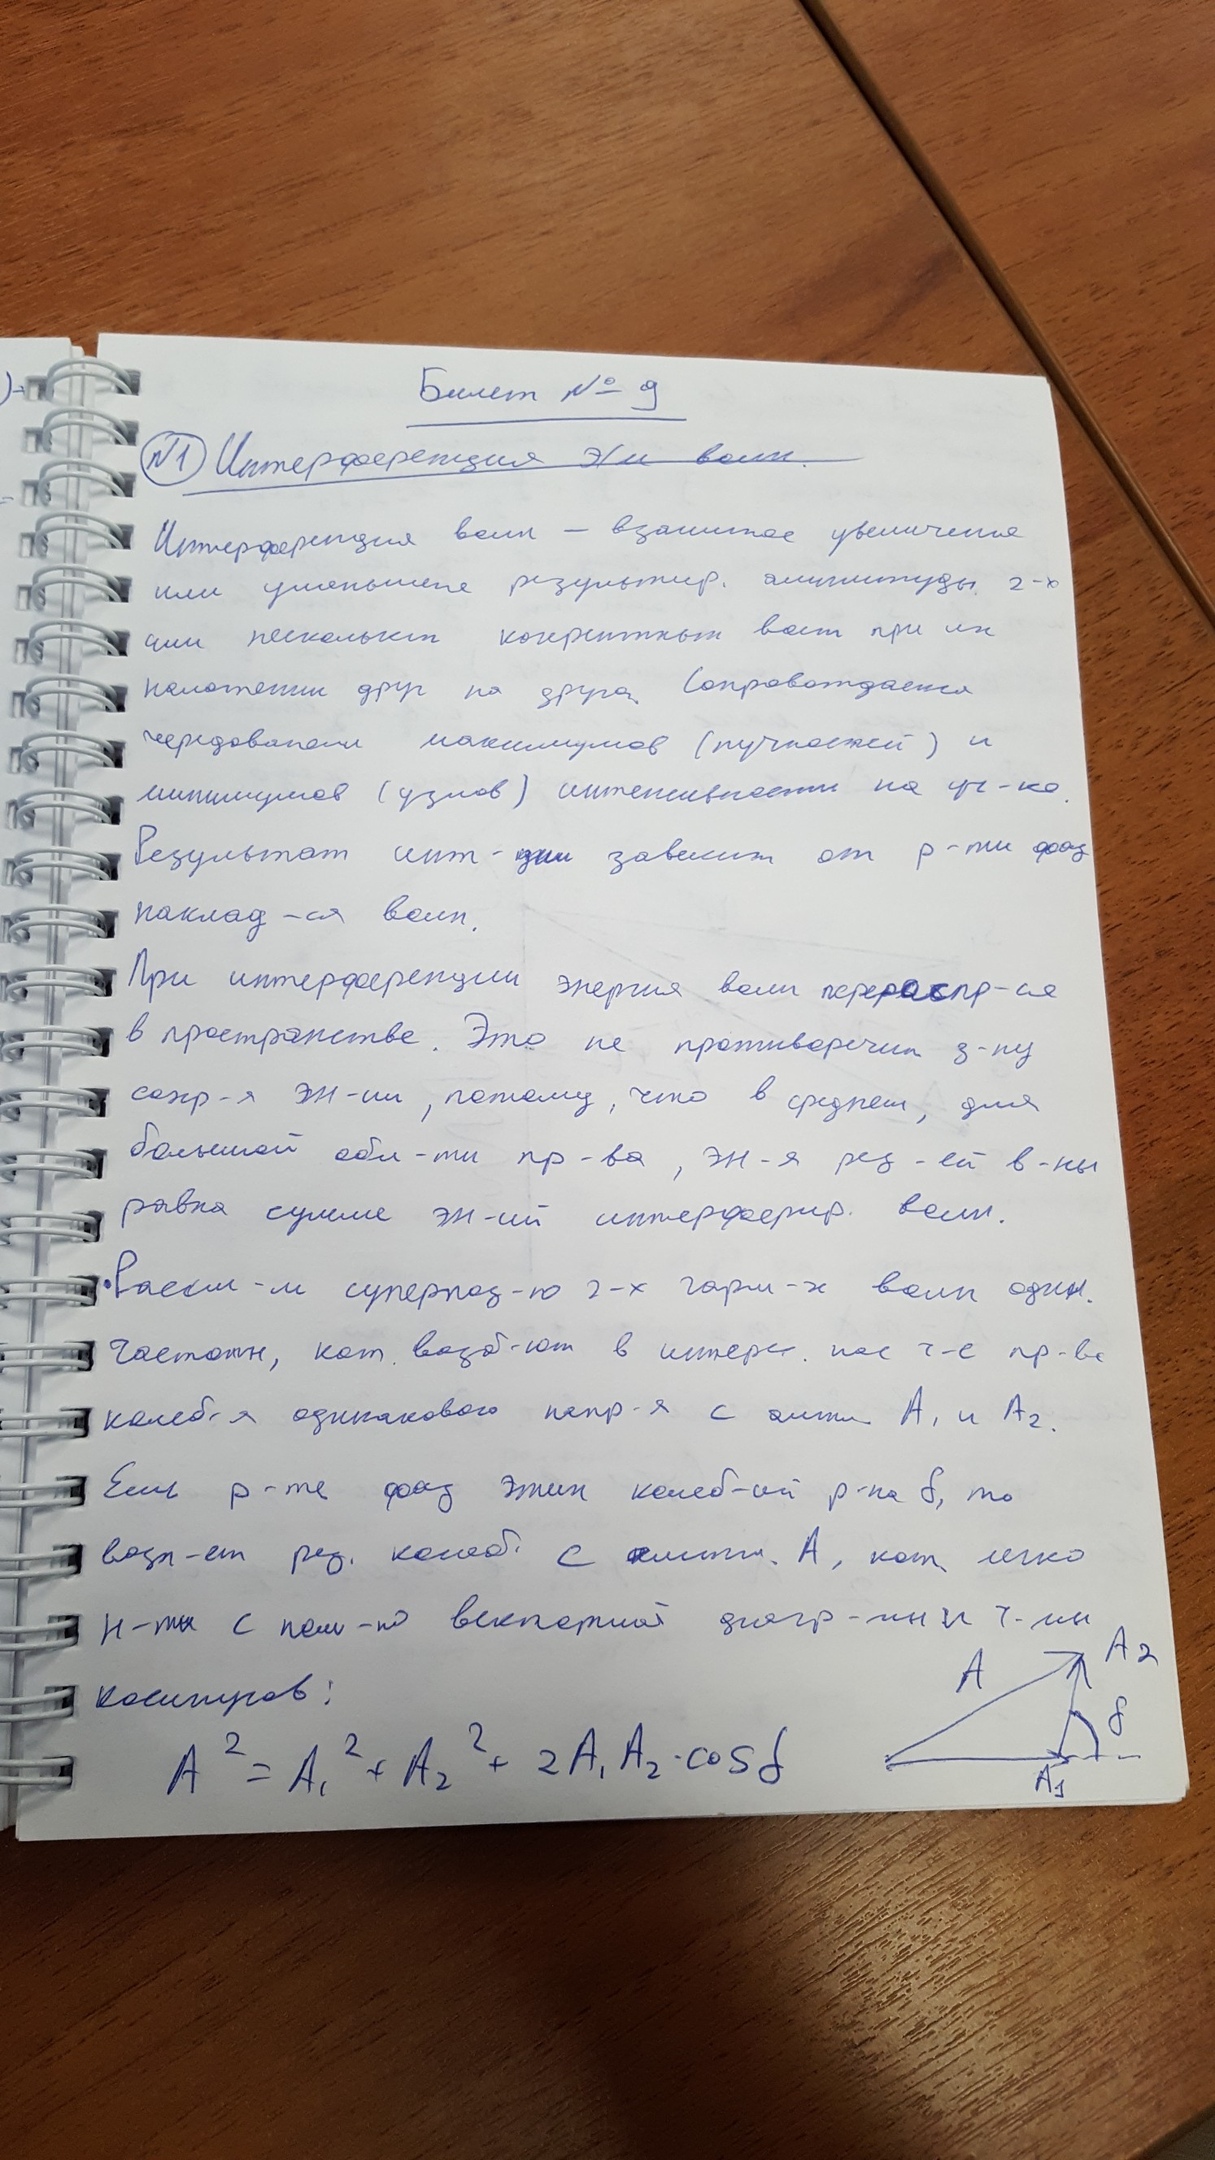 Билет № 9
№1 Интерференция ЭМ волн.
Интерференция волн – взаимное увеличение
или уменьшение результир. амплитуды 2-х
или нескольких когерентных волн при их
наложении друг на друга. Сопровождается
чередованием максимумов (пучностей) и
минимумов (узлов) интенсивности на
Результат инт-ции зависит от р-ти фаз
наклад-ся волн.
При интерференции энергия волн перераспр-ся
в пространстве. Это не противоречит з-ну
сохр-я эн-ии, потому, что в среднем, для
большой обл-ти пр-ва, эн-я рез-ей в-ны
равна сумме эн-ий интерферир. волн.
• Рассм-м суперпоз-ю 2-х гарм-х волн один.
частоты, кот. возб-ют в интерес. нас т-е пр-ва
колеб-я одинакового напр-я с ампл A₁ и A₂.
Если р-ть фаз этих колеб-ий р-на δ, то
возн-ет рез. колеб. с ампл. A, кот. легко
н-ти с пом-ю векторной диагр-мы и т-мы
косинусов:
A² = A₁² + A₂² + 2A₁A₂·cosδ
A
A₂
δ
A₁